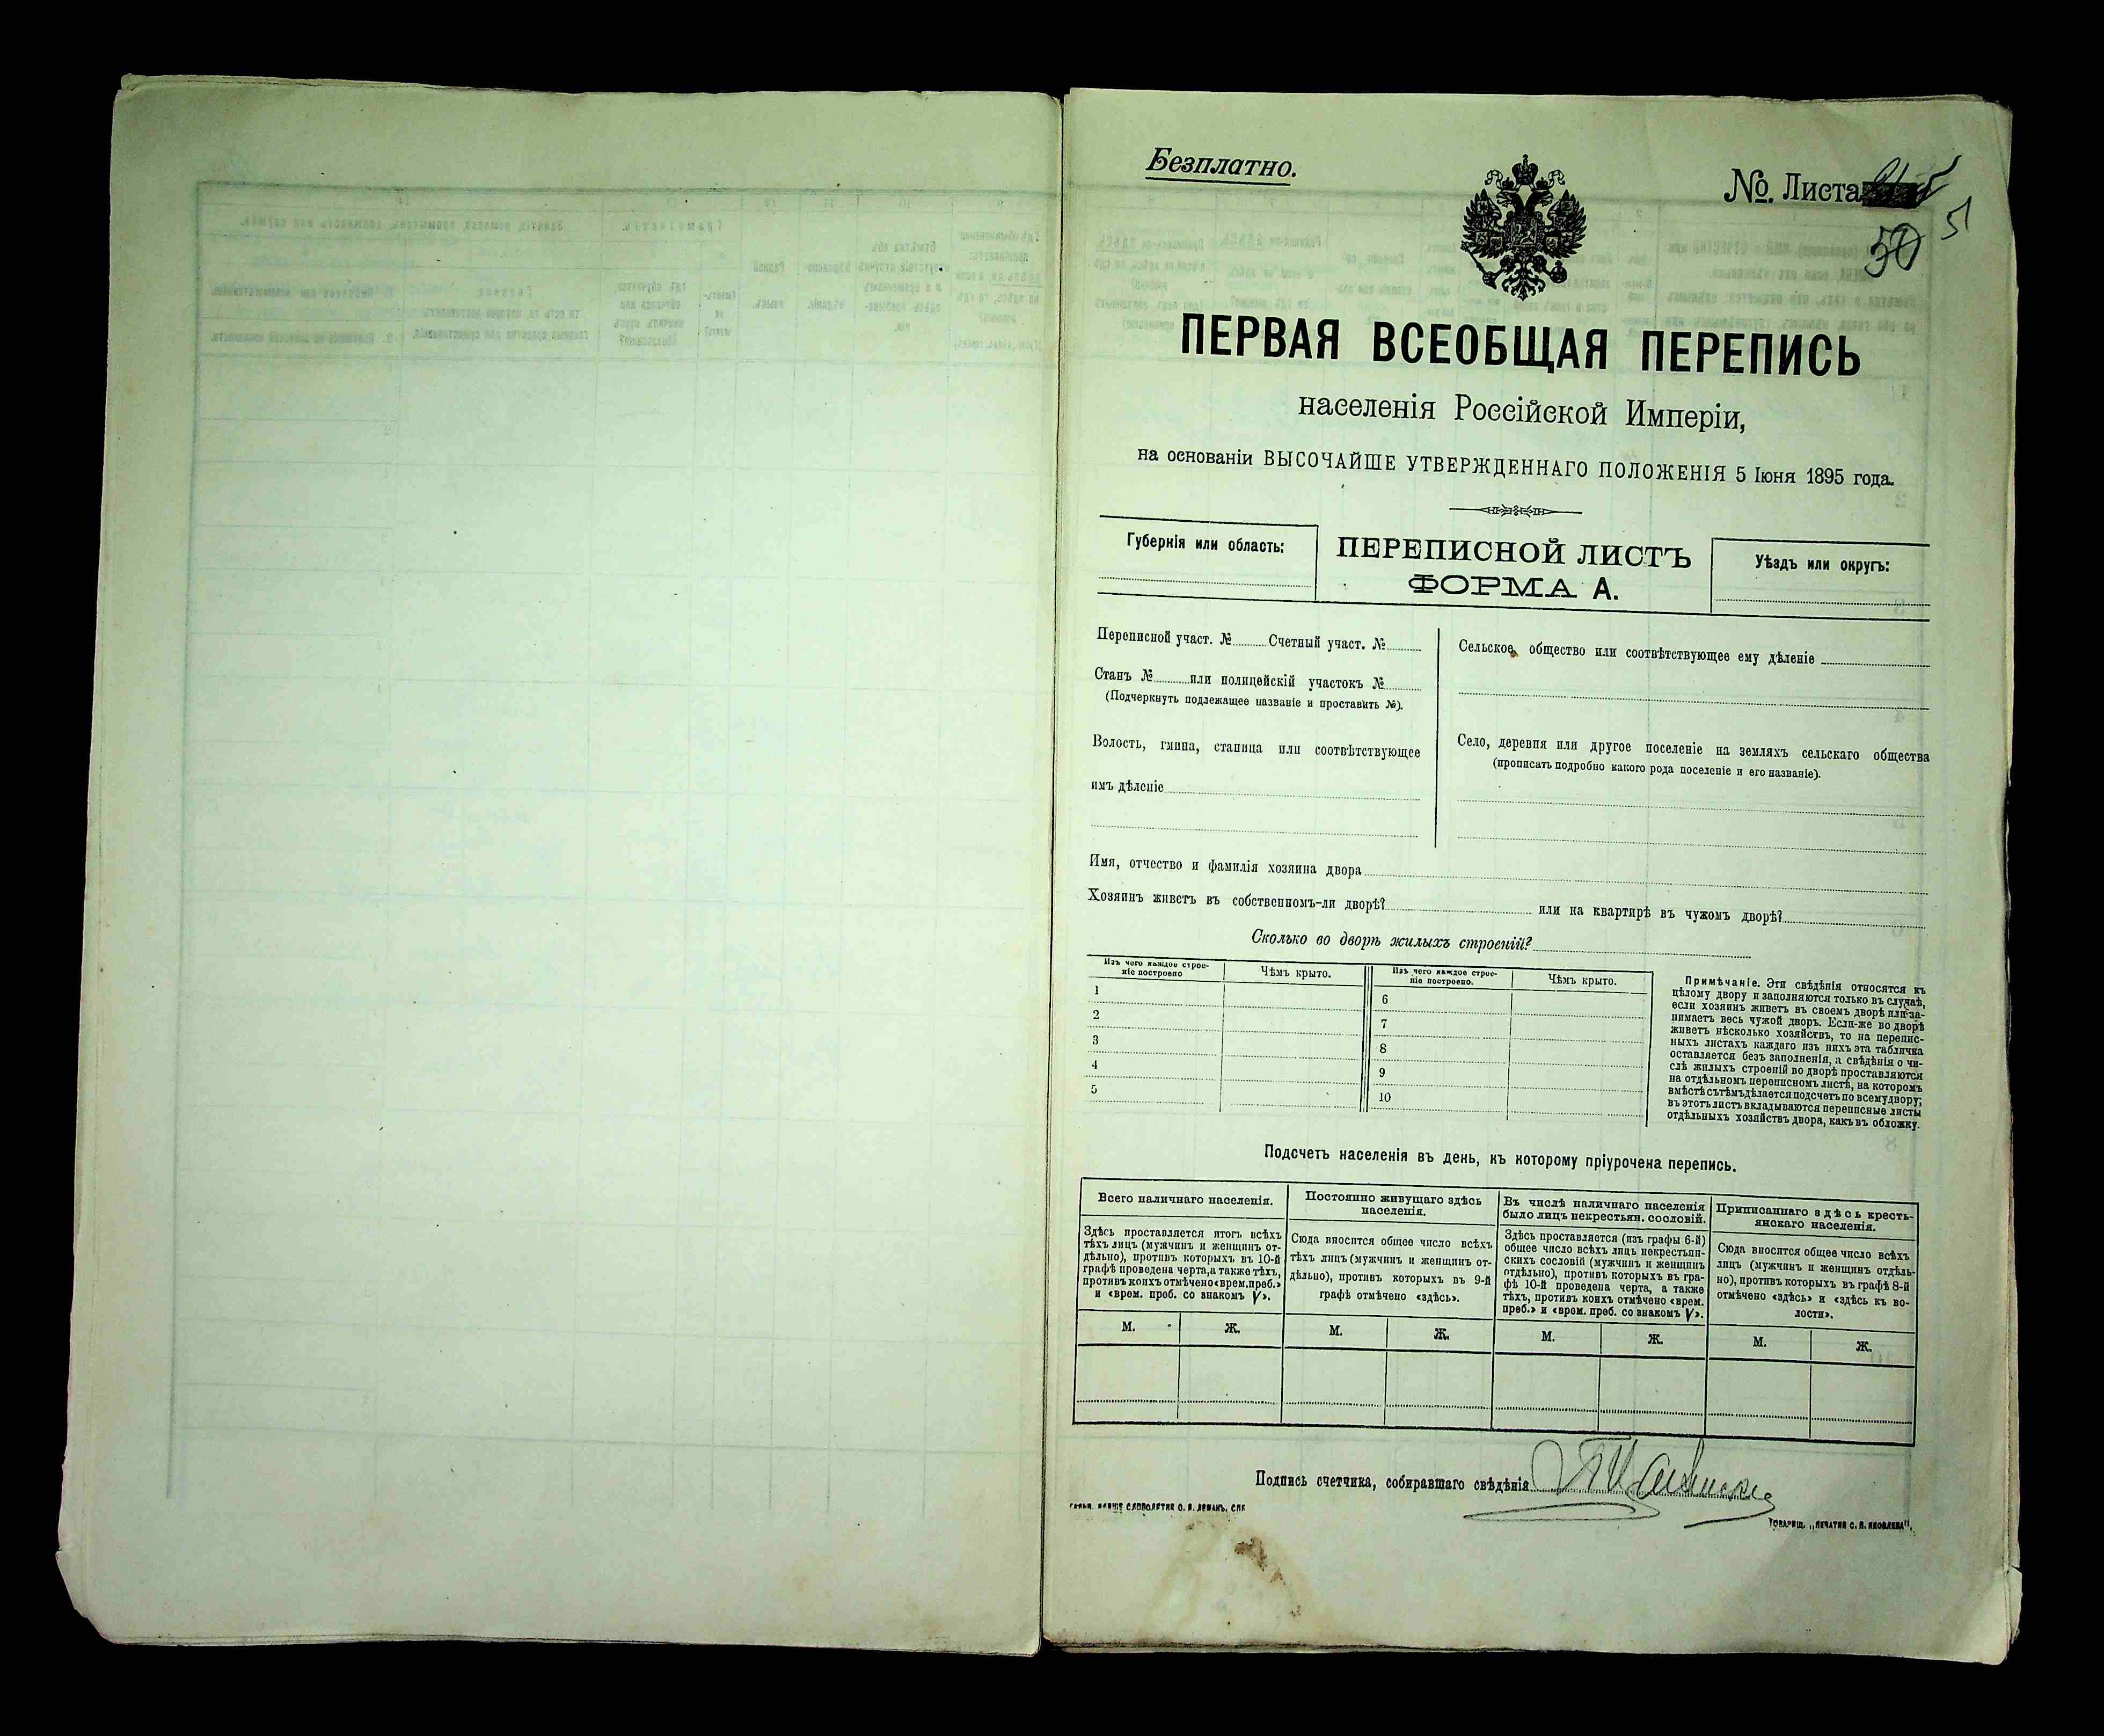 Безплатно.
№. Листа
50
51
ПЕРВАЯ ВСЕОБЩАЯ ПЕРЕПИСЬ
населенія Россійской Имперіи,
на основаніи ВЫСОЧАЙШЕ УТВЕРЖДЕННАГО ПОЛОЖЕНІЯ 5 Іюня 1895 года.
Губернія или область:
ПЕРЕПИСНОЙ ЛИСТЪ
ФОРМА А.
Уѣздъ или округъ:
Переписной участ. № Счетный участ. №
Станъ № или полицейскій участокъ №
(Подчеркнуть подлежащее названіе и проставить №).
Волость, гмина, станица или соотвѣтствующее
имъ дѣленіе
Сельское общество или соотвѣтствующее ему дѣленіе
Село, деревня или другое поселеніе на земляхъ сельскаго общества
(прописать подробно какого рода поселеніе и его названіе).
Имя, отчество и фамилія хозяина двора
Хозяинъ живетъ въ собственномъ-ли дворѣ? или на квартирѣ въ чужомъ дворѣ?
Сколько во дворѣ жилыхъ строеній?
Изъ чего каждое строе-
ніе построено
Чѣмъ крыто.
Изъ чего каждое строе-
ніе построено.
Чѣмъ крыто.
1
2
3
4
5
6
7
8
9
10
Примѣчаніе. Эти свѣдѣнія относятся къ
цѣлому двору и заполняются только въ случаѣ,
если хозяинъ живетъ въ своемъ дворѣ или за-
нимаетъ весь чужой дворъ. Если-же во дворѣ
живетъ нѣсколько хозяйствъ, то на перепис-
ныхъ листахъ каждаго изъ нихъ эта табличка
оставляется безъ заполненія, а свѣдѣнія о чи-
слѣ жилыхъ строеній во дворѣ проставляются
на отдѣльномъ переписномъ листѣ, на которомъ
вмѣстѣ съ тѣмъ дѣлается подсчетъ по всему двору;
въ этотъ листъ вкладываются переписные листы
отдѣльныхъ хозяйствъ двора, какъ въ обложку.
Подсчетъ населенія въ день, къ которому пріурочена перепись.
Всего наличнаго населенія.
Здѣсь проставляется итогъ всѣхъ
тѣхъ лицъ (мужчинъ и женщинъ от-
дѣльно), противъ которыхъ въ 10-й
графѣ проведена черта, а также тѣхъ,
противъ коихъ отмѣчено «врем. преб.»
и «врем. преб. со знакомъ V».
Постоянно живущаго здѣсь
населенія.
Сюда вносится общее число всѣхъ
тѣхъ лицъ (мужчинъ и женщинъ от-
дѣльно), противъ которыхъ въ 9-й
графѣ отмѣчено «здѣсь».
Въ числѣ наличнаго населенія
было лицъ некрестьян. сословій.
Здѣсь проставляется (изъ графы 6-й)
общее число всѣхъ лицъ некрестьян-
скихъ сословій (мужчинъ и женщинъ
отдѣльно), противъ которыхъ въ гра-
фѣ 10-й проведена черта, а также
тѣхъ, противъ коихъ отмѣчено «врем.
преб.» и «врем. преб. со знакомъ V».
Приписаннаго здѣсь кресть-
янскаго населенія.
Сюда вносится общее число всѣхъ
лицъ (мужчинъ и женщинъ отдѣль-
но), противъ которыхъ въ графѣ 8-й
отмѣчено «здѣсь» и «здѣсь къ во-
лости».
М. Ж. М. Ж. М. Ж. М. Ж.
Подпись счетчика, собиравшаго свѣдѣнія
СЛОВОЛИТНЯ О. И. ЛЕМАНЪ, СПБ
ТОВАРИЩ. „ПЕЧАТНЯ С. П. ЯКОВЛЕВА".